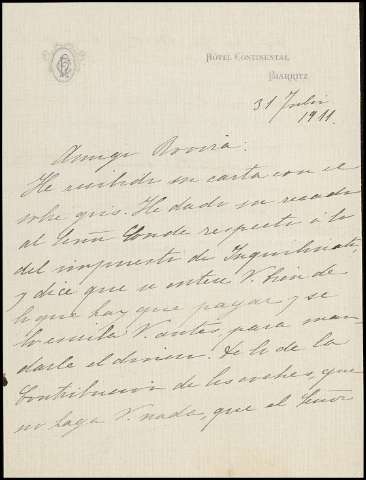 HÔTEL CONTINENTAL
BIARRITZ
31 Julio
1911.
Amigo Rovira:
He recibido su carta con el
sobre gris. He dado su recado
al Señor Conde respecto á lo
del impuesto de Inquilinato,
y dice que se entere V. bien de
lo que hay que pagar, y se
lo escriba V. antes, para man-
darle el dinero. Lo de la
Contribución de los coches, que
no haga V. nada, que el Señor